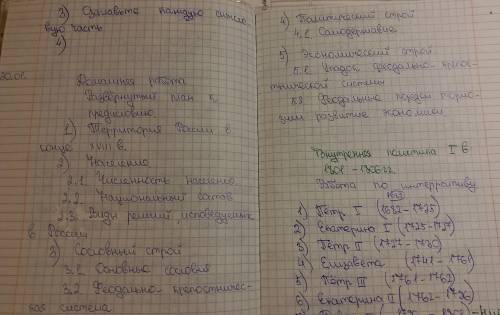 3) Озаглавьте каждую смысло-
вую часть
4)
Домашняя работа
Развёрнутый план к
предисловию
1) Территория России в
конце XVIII в.
2) Население
2.1. Численность населения
2.2. Национальный состав
2.3. Виды религий, исповедуемых
в России
3) Сословный строй
3.1. Основные сословия
3.2 Феодально-крепостничес-
кая система
4) Политический строй
4.1. Самодержавие
5) Экономический строй
5.1. Упадок феодально-крепос-
тнической системы
Феодальные порядки тормо-
зили развитие экономики
Внутренняя политика I
1801 - 1806 гг.
Работа по
1) Пётр I (1682 - 1725)
2) Екатерина I (1725-1727)
3) Пётр II (1727-1730)
4) Елизавета (1741 - 1761)
5) Пётр III (1761 - 1762)
6) Екатерина II (1762 - 1796)